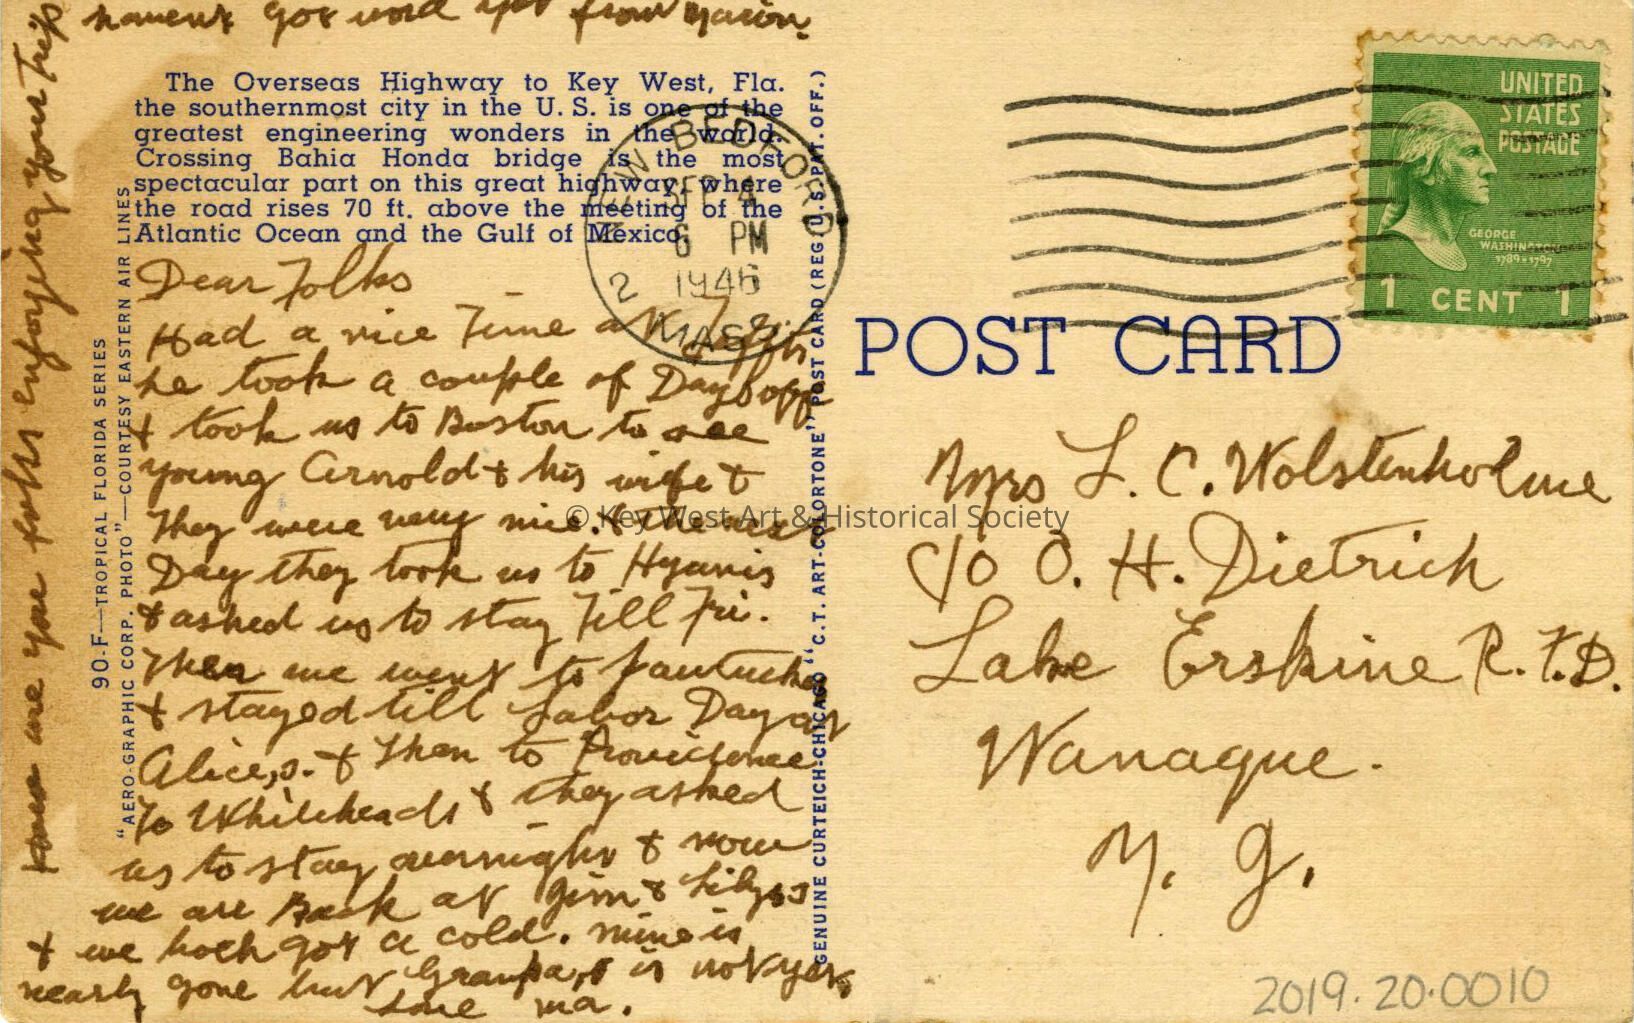 haven't got word yet from Marion.
The Overseas Highway to Key West, Fla.
the southernmost city in the U. S. is one of the
greatest engineering wonders in the world.
Crossing Bahia Honda bridge is the most
spectacular part on this great highway, where
the road rises 70 ft. above the meeting of the
Atlantic Ocean and the Gulf of Mexico.
Dear Folks
Had a nice Time at
he took a couple of Days off
& took us to Boston to see
young Arnold & his wife &
They were very nice. & the next
Day they took us to Hyanis
& asked us to stay Till Fri.
Then we went to Pawtucket
& stayed till Labor Day at
Alice,s. & Then to Providence
To Whiteheads & they asked
us to stay overnight & now
we are Back at Jim & Lily,s
& we both got a cold. mine is
nearly gone but Grampa,s is not yet.
Love Ma.
How are you folks enjoying your Trip
90-F—TROPICAL FLORIDA SERIES
"AERO-GRAPHIC CORP. PHOTO"—COURTESY EASTERN AIR LINES
GENUINE CURTEICH-CHICAGO "C.T. ART-COLORTONE" POST CARD (REG U.S. PAT. OFF.)
NEW BEDFORD
SEP 4
6 PM
1946
2
MASS.
UNITED
STATES
POSTAGE
GEORGE
WASHINGTON
1789-1797
1 CENT 1
POST CARD
Mrs L. C. Wolstenholme
c/o O. H. Dietrich
Lake Erskine R.F.D.
Wanaque.
N. J.
© Key West Art & Historical Society
2019.20.0010